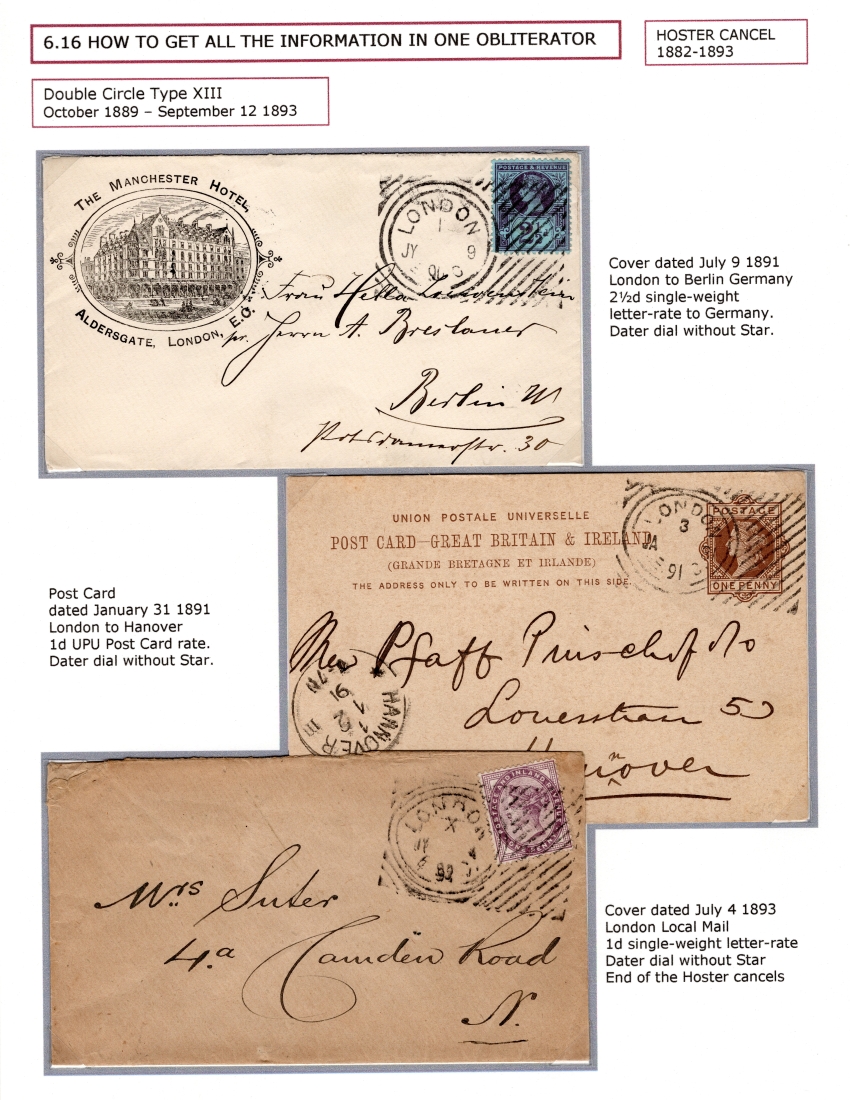 6.16 HOW TO GET ALL THE INFORMATION IN ONE OBLITERATOR
HOSTER CANCEL
1882-1893
Double Circle Type XIII
October 1889 – September 12 1893
THE MANCHESTER HOTEL,
ALDERSGATE, LONDON, E.C.
LONDON
1
JY 9
POSTAGE & REVENUE
2½d
Frau
Herrn A. Breslauer
Berlin W
Potsdamerstr. 30
Cover dated July 9 1891
London to Berlin Germany
2½d single-weight
letter-rate to Germany.
Dater dial without Star.
UNION POSTALE UNIVERSELLE
POST CARD–GREAT BRITAIN & IRELAND
(GRANDE BRETAGNE ET IRLANDE)
THE ADDRESS ONLY TO BE WRITTEN ON THIS SIDE.
LONDON
3
JA
91
POSTAGE
ONE PENNY
Pfaff
Hannover
HANNOVER
91
Post Card
dated January 31 1891
London to Hanover
1d UPU Post Card rate.
Dater dial without Star.
LONDON
X
JY 4
POSTAGE AND INLAND REVENUE
ONE PENNY
Mrs Suter
4a Camden Road
N.
Cover dated July 4 1893
London Local Mail
1d single-weight letter-rate
Dater dial without Star
End of the Hoster cancels